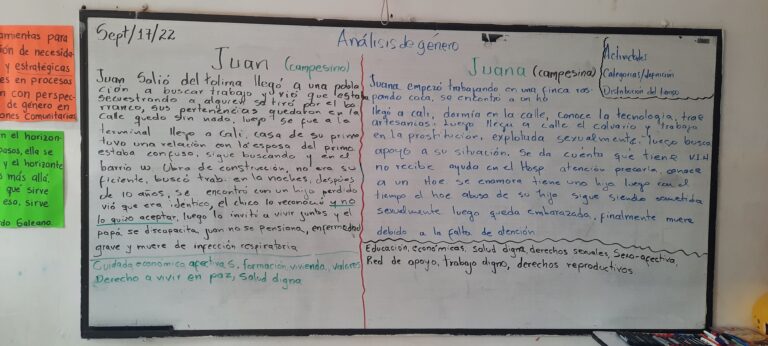 amientas para
ión de necesida
y estratégicas
es en procesos
n con perspec-
de género en
ones Comunitarias
n el horizon-
pasos, ella se
y el horizonte
s más allá.
qué sirve
eso, sirve
do Galeano.
Sept/17/22
Análisis de género
Juan (campesino)
Juan Salió del tolima llegó a una pobla
ción a buscar trabajo y vió que estaba
secuestrando a alguien se tiró por el ba
rranco, sus pertenencias quedaron en la
calle quedo sin nada, luego se fue a la
terminal llego a Cali, casa de su primo
tuvo una relación con la esposa del primo
estaba confuso, sigue buscando y en el
barrio w. Obra de construcción, no era su
ficiente, buscó trab. en la noches, después
de 10 años, se encontró con un hijo perdido
vió que era identico, el chico lo reconoció y no
lo quiso aceptar, luego lo invitó a vivir juntos y el
papá, se discapacita, juan no se pensiona, enfermedad
grave y muere de infección respiratoria
Cuidado, económica, afectivas, formación, vivienda, valores
Derecho a vivir en paz, Salud digna
Juana (campesina)
Juana empezó trabajando en una finca ras-
pando coca, se encontró a un ho
llegó a cali, dormía en la calle, conoce la tecnología, trae
artesanías, luego llega a calle el calvario y trabajo
en la prostitución, explotada sexualmente, luego busca
apoyo a su situación. Se da cuenta que tiene VIH
no recibe ayuda en el Hosp atención precaria, conoce
a un Hoe se enamora tiene uno hijo luego con el
tiempo el hoe abusa de su hijo sigue siendo sometida
sexualmente luego queda embarazada, finalmente muere
debido a la falta de atención
Educación, económicas, salud digna, derechos sexuales, Sexo-afectiva
Red de apoyo, trabajo digno, derechos reproductivos
Categorías/definición